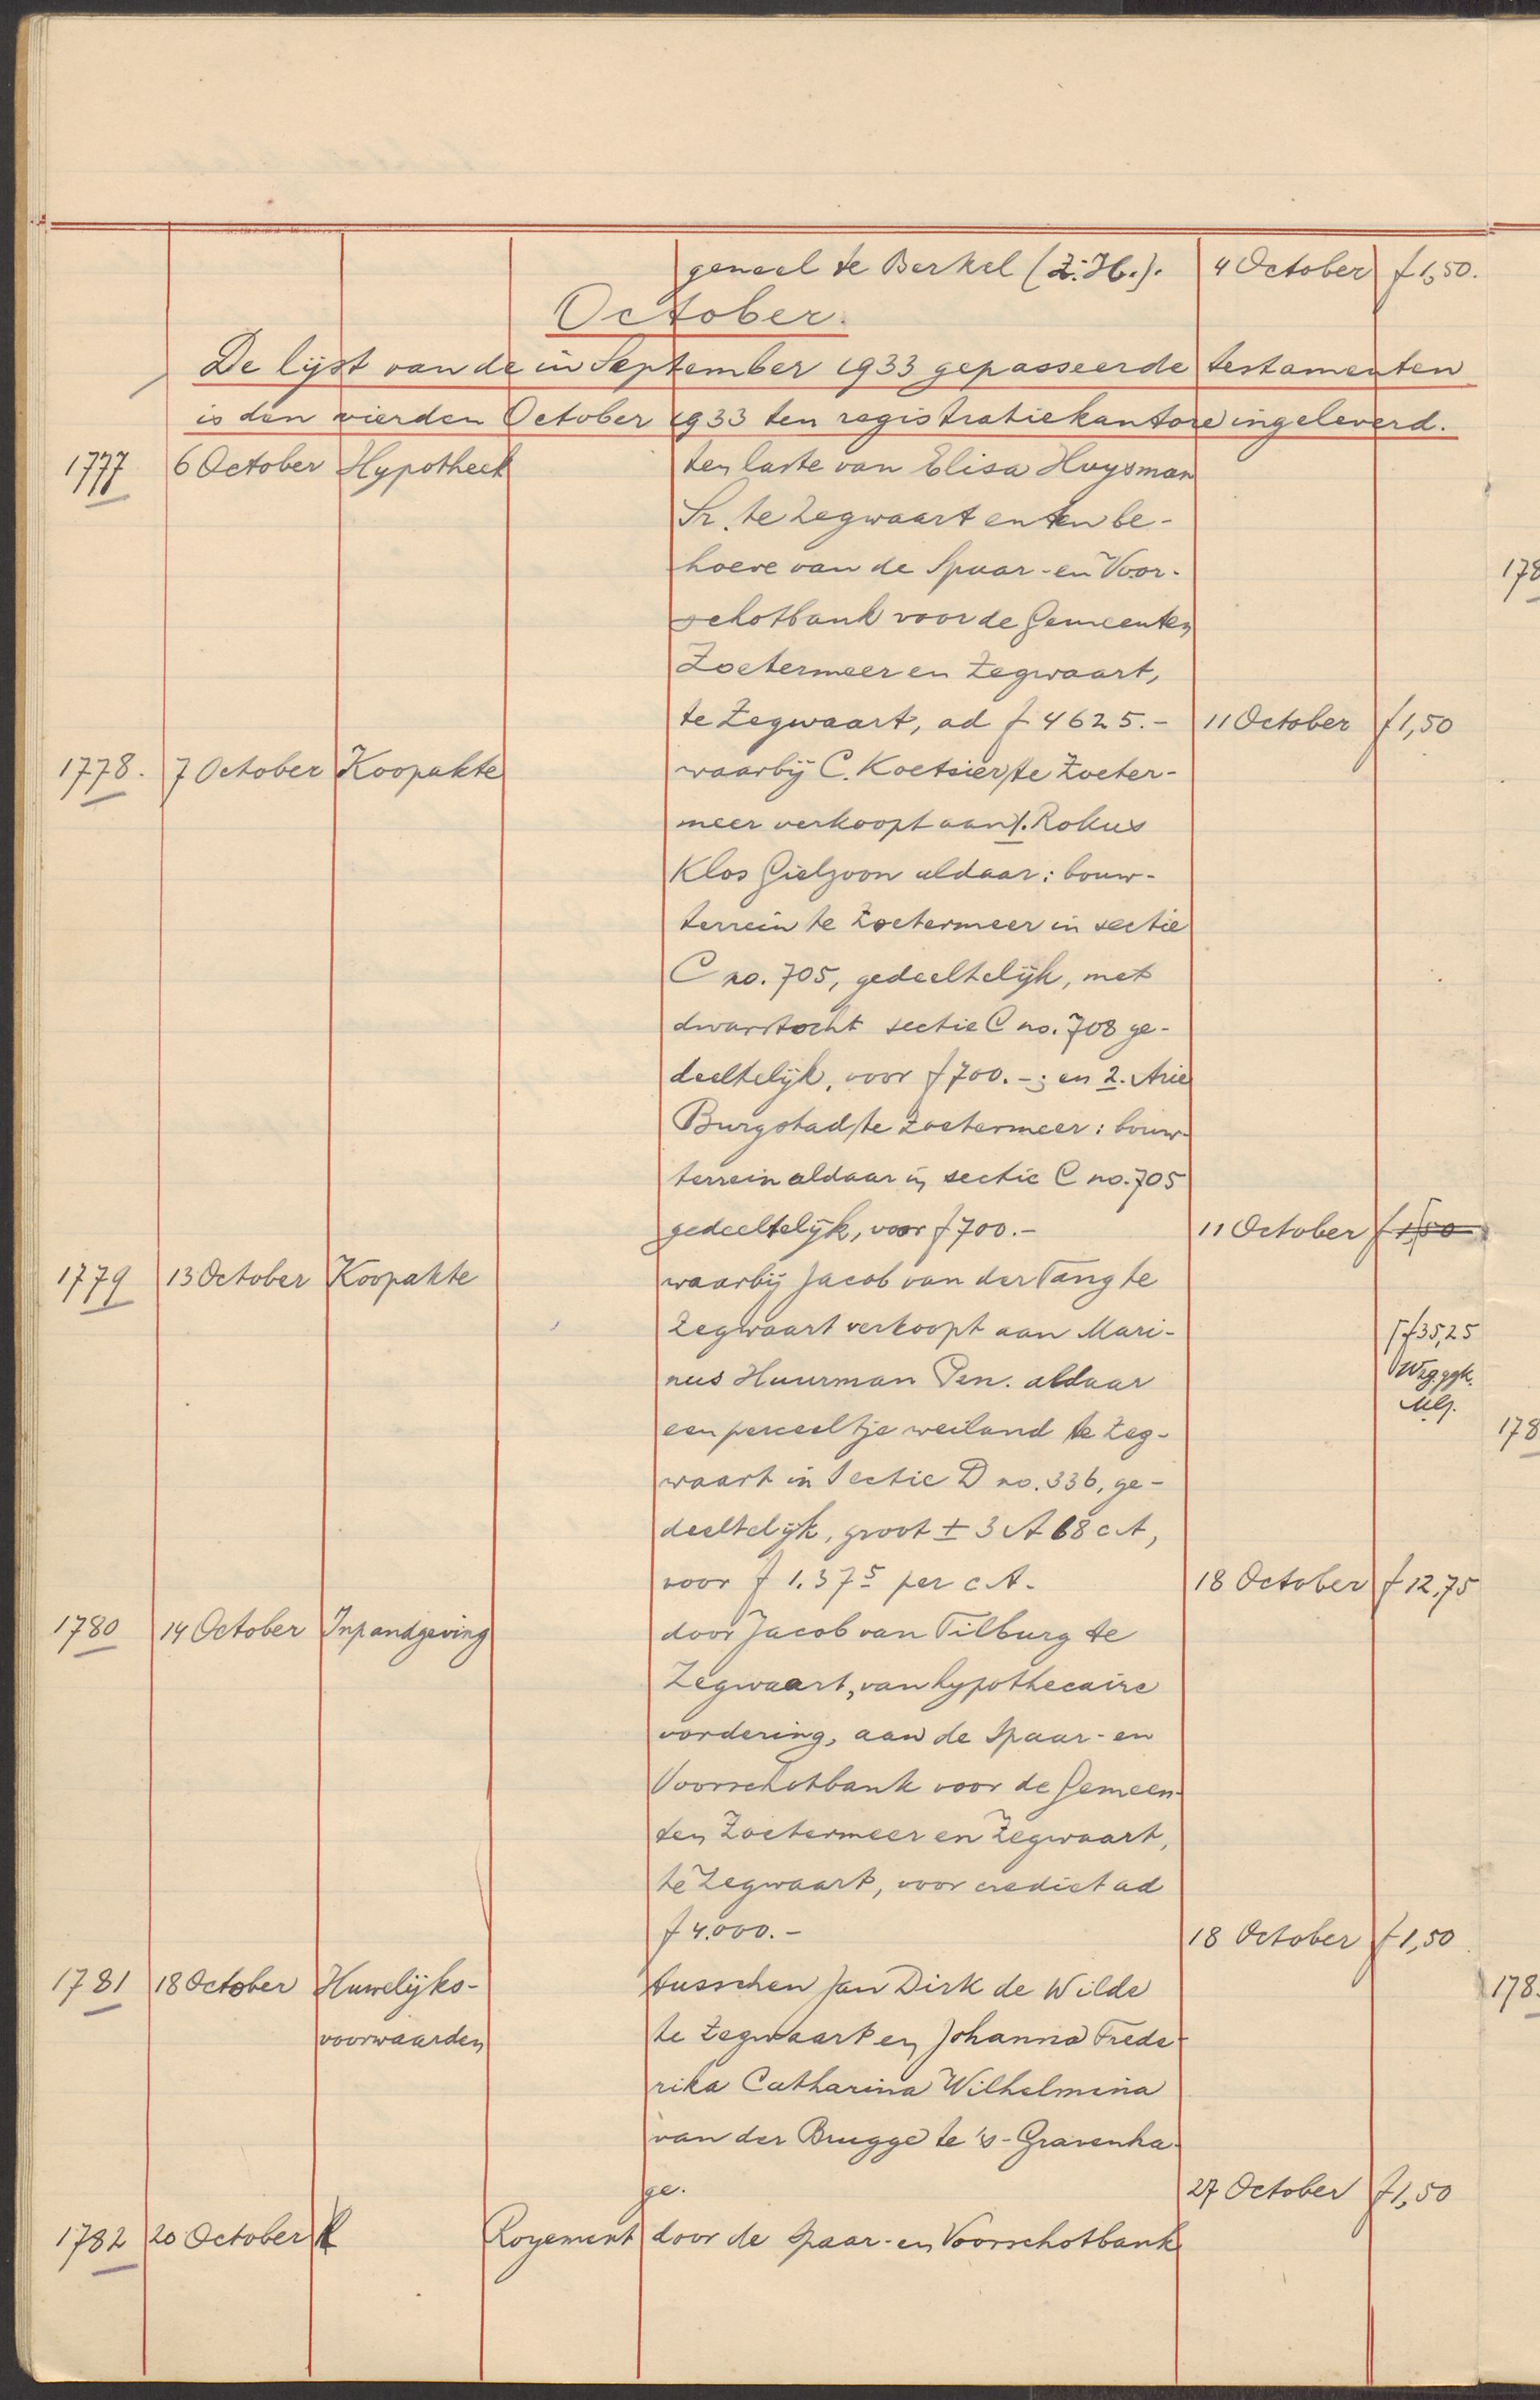 geneel te Berkel (Z.H.). 4 October f 1,50.
October.
De lijst van de in September 1933 gepasseerde testamenten
is den vierden October 1933 ten registratiekantore ingeleverd.
1777 6 October Hypotheek ten laste van Elisa Huysman
Sr. te Zegwaart en ten be-
hoeve van de Spaar- en Voor-
schotbank voor de Gemeenten
Zoetermeer en Zegwaart,
te Zegwaart, ad f 4625.- 11 October f 1,50
1778. 7 October Koopakte waarbij C. Koetsier te Zoeter-
meer verkoopt aan 1. Rokus
Klos Gielzoon aldaar: bouw-
terrein te Zoetermeer in sectie
C no. 705, gedeeltelijk, met
dwarstocht sectie C no. 708 ge-
deeltelijk, voor f 700.-; en 2. Arie
Burgstad te Zoetermeer: bouw-
terrein aldaar in sectie C no. 705
gedeeltelijk, voor f 700.- 11 October f 1,50
1779 13 October Koopakte waarbij Jacob van der Tang te
Zegwaart verkoopt aan Mari- f 35,25
nus Huurman Pzn. aldaar
een perceeltje weiland te Zeg-
waart in Sectie D no. 336, ge-
deeltelijk, groot ± 3 A 68 cA,
voor f 1.37⁵ per cA. 18 October f 12,75
1780 14 October Inpandgeving door Jacob van Tilburg te
Zegwaart, van hypothecaire
vordering, aan de Spaar- en
Voorschotbank voor de Gemeen-
ten Zoetermeer en Zegwaart,
te Zegwaart, voor crediet ad
f 4.000.- 18 October f 1,50
1781 18 October Huwelijks- tusschen Jan Dirk de Wilde
voorwaarden te Zegwaart en Johanna Frede-
rika Catharina Wilhelmina
van der Brugge te 's-Gravenha-
ge. 27 October f 1,50
1782 20 October Royement door de Spaar- en Voorschotbank